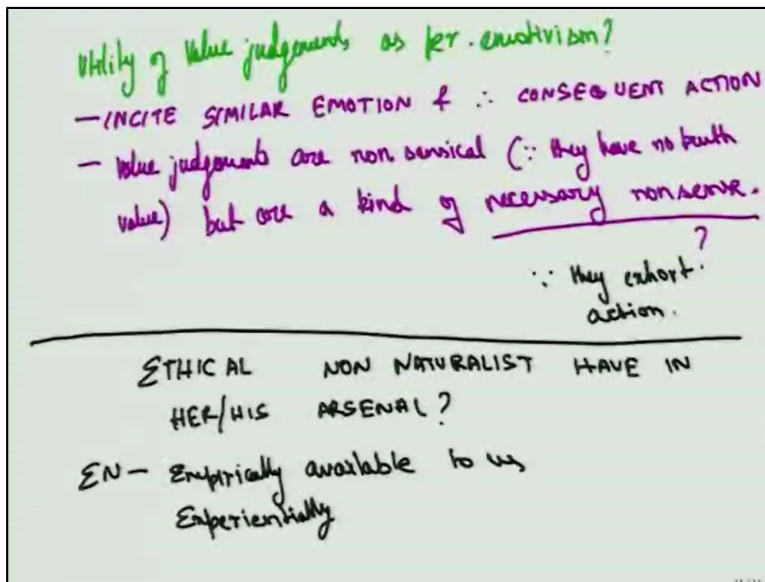 Utility of value judgements as per. emotivism?
— INCITE SIMILAR EMOTION & ∴ CONSEQUENT ACTION
— Value judgements are non sensical (∵ they have no truth
value) but are a kind of necessary nonsense.
?
∵ they exhort
action.
ETHICAL NON NATURALIST HAVE IN
HER/HIS ARSENAL?
EN — Empirically available to us
Experientially